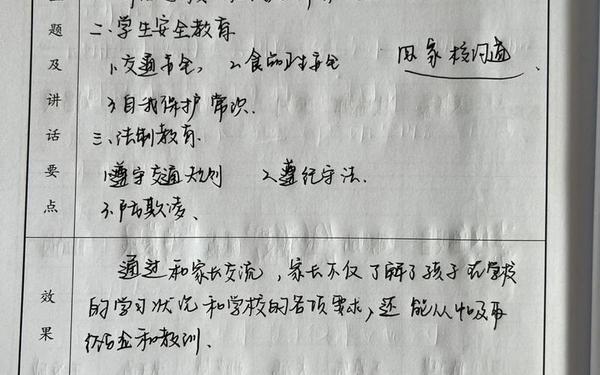 题及讲话要点
二、学生安全教育
1、交通安全, 2、食品卫生安全
3、自我保护常识.
三、法制教育.
1、遵守交通规则 2、遵纪守法.
3、防欺凌、
家校沟通
效果
通过和家长交流, 家长不仅了解了孩子在学校
的学习状况和学校的各项要求, 还能从中吸取
和教训.